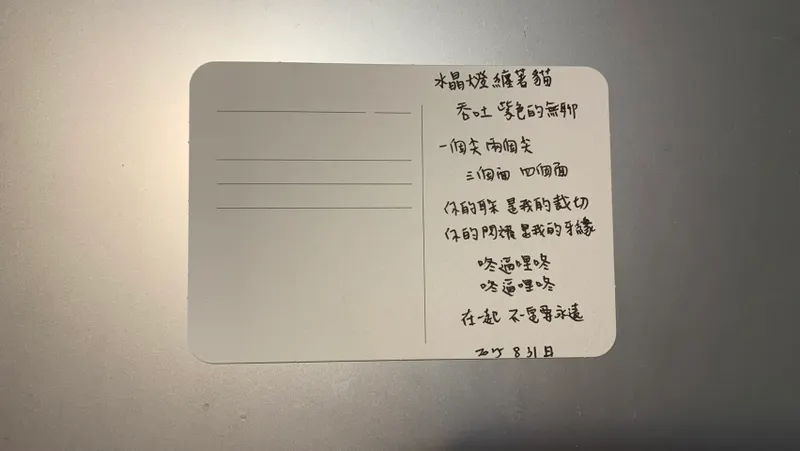 水晶燈纏著貓
吞吐 紫色的無聊
一個尖 兩個尖
三個面 四個面
你的 是我的裁切
你的閃耀 是我的牙緣
咚逼哩咚
咚逼哩咚
在一起 不一定要永遠
2015 8 31 日